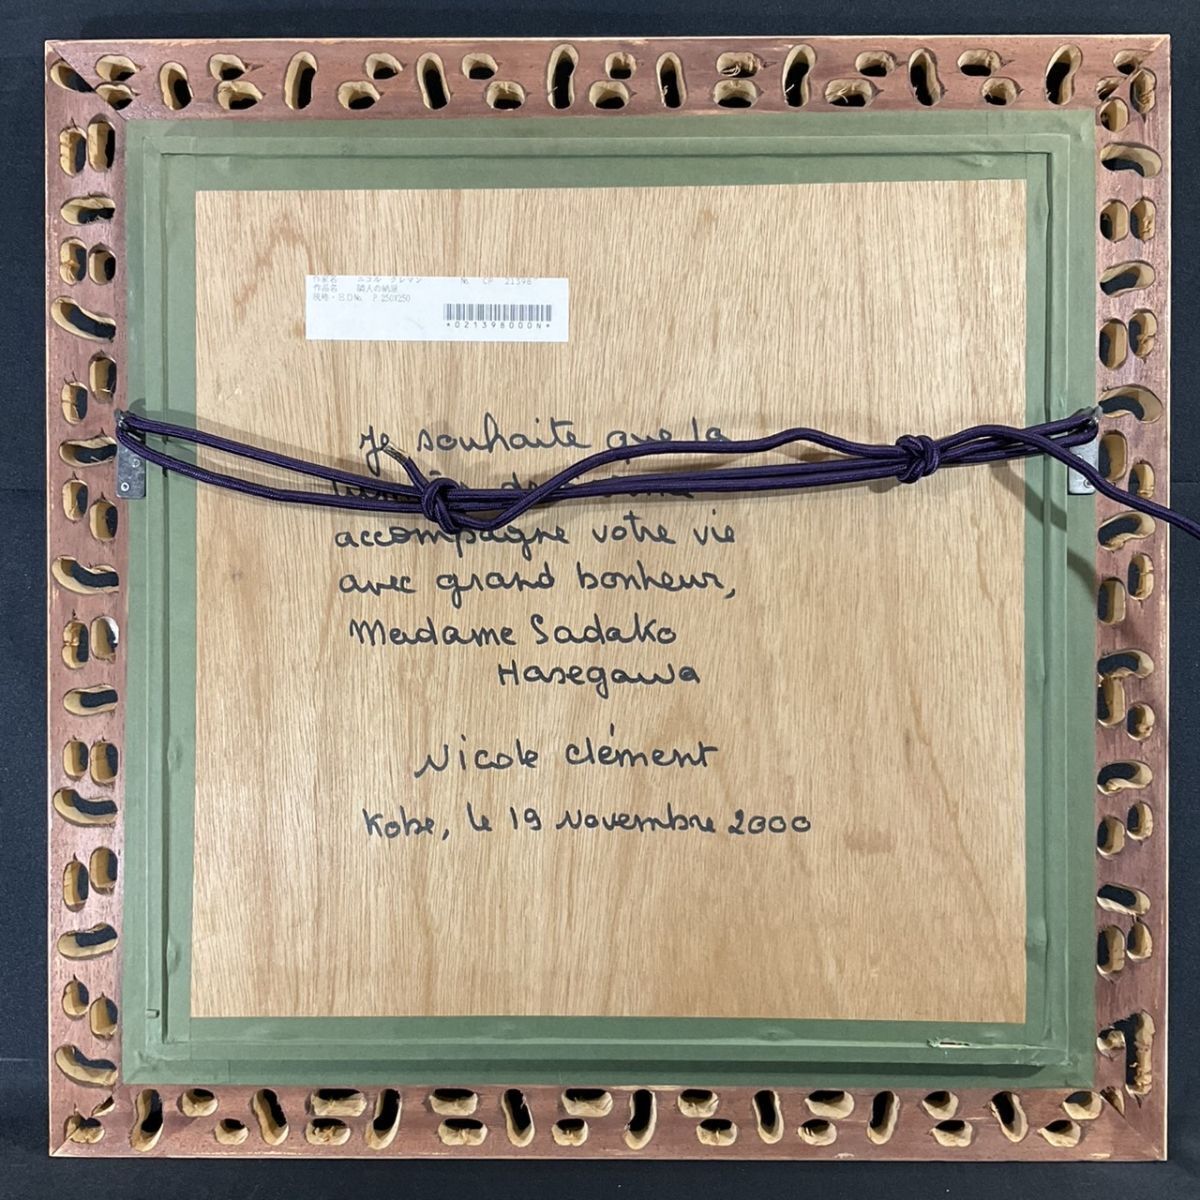 作家名 ニコル クレマン № CP 21398
作品名 隣人の納屋
規格・ED№ P.250X250
*021398000N*
Je souhaite que la
accompagne votre vie
avec grand bonheur,
Madame Sadako
Hasegawa
Nicole Clément
Kobe, le 19 Novembre 2000